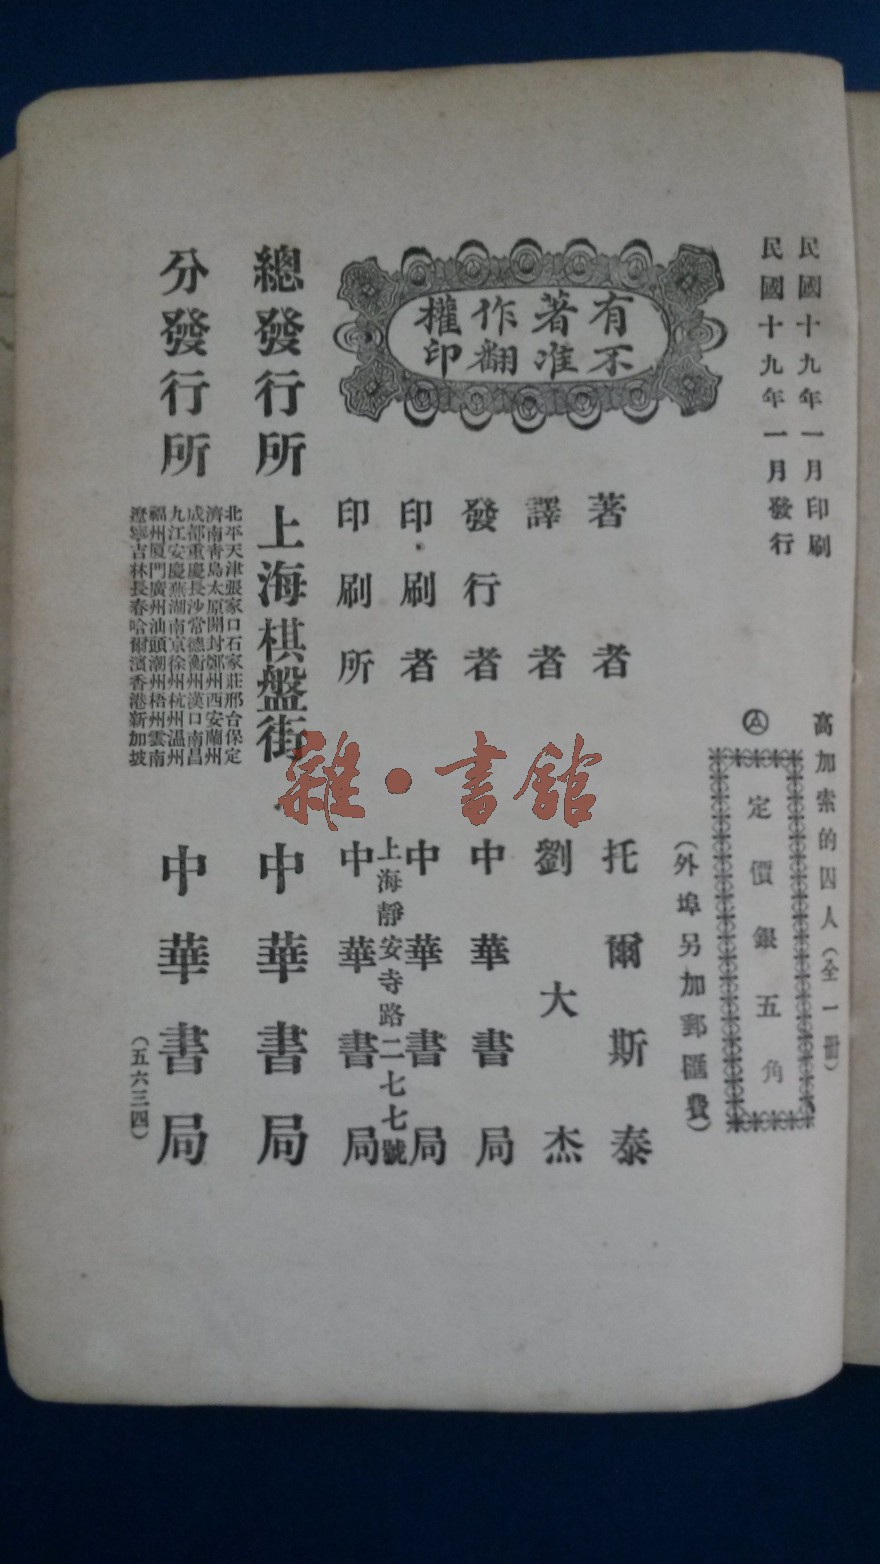 民國十九年一月印刷
民國十九年一月發行
高加索的囚人(全一冊)
Ⓐ
定價銀五角
(外埠另加郵匯費)
有著作權
不准翻印
著者 托爾斯泰
譯者 劉大杰
發行者 中華書局
印刷者 中華書局
上海靜安寺路二七七號
印刷所 中華書局
總發行所 上海棋盤街 中華書局
分發行所
北平天津張家口石家莊邢台保定
濟南靑島太原開封鄭州西安蘭州
成都重慶長沙常德衡州漢口南昌
九江安慶蕪湖南京徐州杭州溫州
福州厦門廣州汕頭潮州梧州雲南
遼寧吉林長春哈爾濱香港新加坡
中華書局
(五六三四)
雜·書館